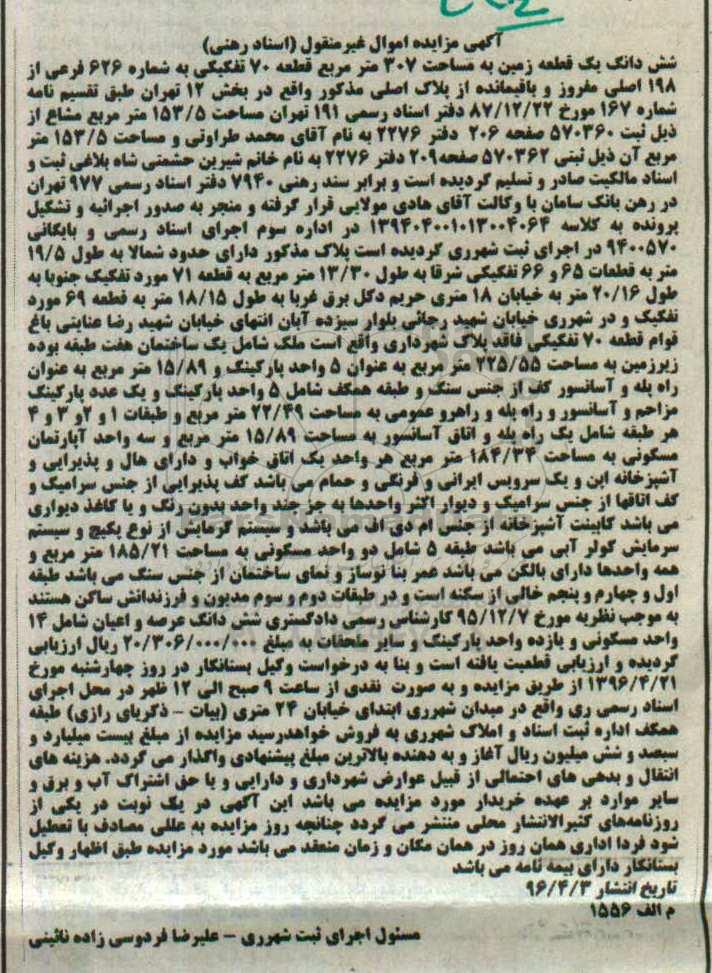 آگهی مزایده اموال غیرمنقول (اسناد رهنی)
شش دانگ یک قطعه زمین به مساحت ۳۰۷ متر مربع قطعه ۷۰ تفکیکی به شماره ۶۲۶ فرعی از
۱۹۸ اصلی مفروز و باقیمانده از پلاک اصلی مذکور واقع در بخش ۱۲ تهران طبق تقسیم نامه
شماره ۱۶۷ مورخ ۸۷/۱۲/۲۲ دفتر اسناد رسمی ۱۹۱ تهران مساحت ۱۵۳/۵ متر مربع مشاع از
ذیل ثبت ۵۷۰۳۶۰ صفحه ۲۰۶ دفتر ۲۲۷۶ به نام آقای محمد طراوتی و مساحت ۱۵۳/۵ متر
مربع آن ذیل ثبتی ۵۷۰۳۶۲ صفحه ۲۰۹ دفتر ۲۲۷۶ به نام خانم شیرین حشمتی شاه بلاغی ثبت و
اسناد مالکیت صادر و تسلیم گردیده است و برابر سند رهنی ۷۹۴۰ دفتر اسناد رسمی ۹۷۷ تهران
در رهن بانک سامان با وکالت آقای هادی مولایی قرار گرفته و منجر به صدور اجرائیه و تشکیل
پرونده به کلاسه ۱۳۹۴۰۴۰۰۱۰۱۳۰۰۴۰۶۴ در اداره سوم اجرای اسناد رسمی و بایگانی
۹۴۰۰۵۷۰ در اجرای ثبت شهرری گردیده است پلاک مذکور دارای حدود شمالا به طول ۱۹/۵
متر به قطعات ۶۵ و ۶۶ تفکیکی شرقا به طول ۱۳/۳۰ متر مربع به قطعه ۷۱ مورد تفکیک جنوبا به
طول ۲۰/۱۶ متر به خیابان ۱۸ متری حریم دکل برق غربا به طول ۱۸/۱۵ متر به قطعه ۶۹ مورد
تفکیک و در شهرری خیابان شهید رجائی بلوار سیزده آبان انتهای خیابان شهید رضا عنایتی باغ
قوام قطعه ۷۰ تفکیکی فاقد پلاک شهرداری واقع است ملک شامل یک ساختمان هفت طبقه بوده
زیرزمین به مساحت ۲۲۵/۵۵ متر مربع به عنوان ۵ واحد پارکینگ و ۱۵/۸۹ متر مربع به عنوان
راه پله و آسانسور کف از جنس سنگ و طبقه همکف شامل ۵ واحد پارکینگ و یک عدد پارکینگ
مزاحم و آسانسور و راه پله و راهرو عمومی به مساحت ۲۲/۴۹ متر مربع و طبقات ۱ و ۲و ۳ و ۴
هر طبقه شامل یک راه پله و اتاق آسانسور به مساحت ۱۵/۸۹ متر مربع و سه واحد آپارتمان
مسکونی به مساحت ۱۸۴/۳۴ متر مربع هر واحد یک اتاق خواب و دارای هال و پذیرایی و
آشپزخانه اپن و یک سرویس ایرانی و فرنگی و حمام می باشد کف پذیرایی از جنس سرامیک و
کف اتاقها از جنس سرامیک و دیوار اکثر واحدها به جز چند واحد بدون رنگ و یا کاغذ دیواری
می باشد کابینت آشپزخانه از جنس ام دی اف می باشد و سیستم گرمایش از نوع پکیج و سیستم
سرمایش کولر آبی می باشد طبقه ۵ شامل دو واحد مسکونی به مساحت ۱۸۵/۲۱ متر مربع و
همه واحدها دارای بالکن می باشد عمر بنا نوساز و نمای ساختمان از جنس سنگ می باشد طبقه
اول و چهارم و پنجم خالی از سکنه است و در طبقات دوم و سوم مدیون و فرزندانش ساکن هستند
به موجب نظریه مورخ ۹۵/۱۲/۷ کارشناس رسمی دادگستری شش دانگ عرصه و اعیان شامل ۱۴
واحد مسکونی و یازده واحد پارکینگ و سایر ملحقات به مبلغ ۲۰/۳۰۶/۰۰۰/۰۰۰ ریال ارزیابی
گردیده و ارزیابی قطعیت یافته است و بنا به درخواست وکیل بستانکار در روز چهارشنبه مورخ
۱۳۹۶/۴/۲۱ از طریق مزایده و به صورت نقدی از ساعت ۹ صبح الی ۱۲ ظهر در محل اجرای
اسناد رسمی ری واقع در میدان شهرری ابتدای خیابان ۲۴ متری (بیات - ذکریای رازی) طبقه
همکف اداره ثبت اسناد و املاک شهرری به فروش خواهدرسید مزایده از مبلغ بیست میلیارد و
سیصد و شش میلیون ریال آغاز و به دهنده بالاترین مبلغ پیشنهادی واگذار می گردد. هزینه های
انتقال و بدهی های احتمالی از قبیل عوارض شهرداری و دارایی و یا حق اشتراک آب و برق و
سایر موارد بر عهده خریدار مورد مزایده می باشد این آگهی در یک نوبت در یکی از
روزنامه‌های کثیرالانتشار محلی منتشر می گردد چنانچه روز مزایده به عللی مصادف با تعطیل
شود فردا اداری همان روز در همان مکان و زمان منعقد می باشد مورد مزایده طبق اظهار وکیل
بستانکار دارای بیمه نامه می باشد
تاریخ انتشار ۹۶/۴/۳
م الف ۱۵۵۶
مسئول اجرای ثبت شهرری - علیرضا فردوسی زاده نائینی